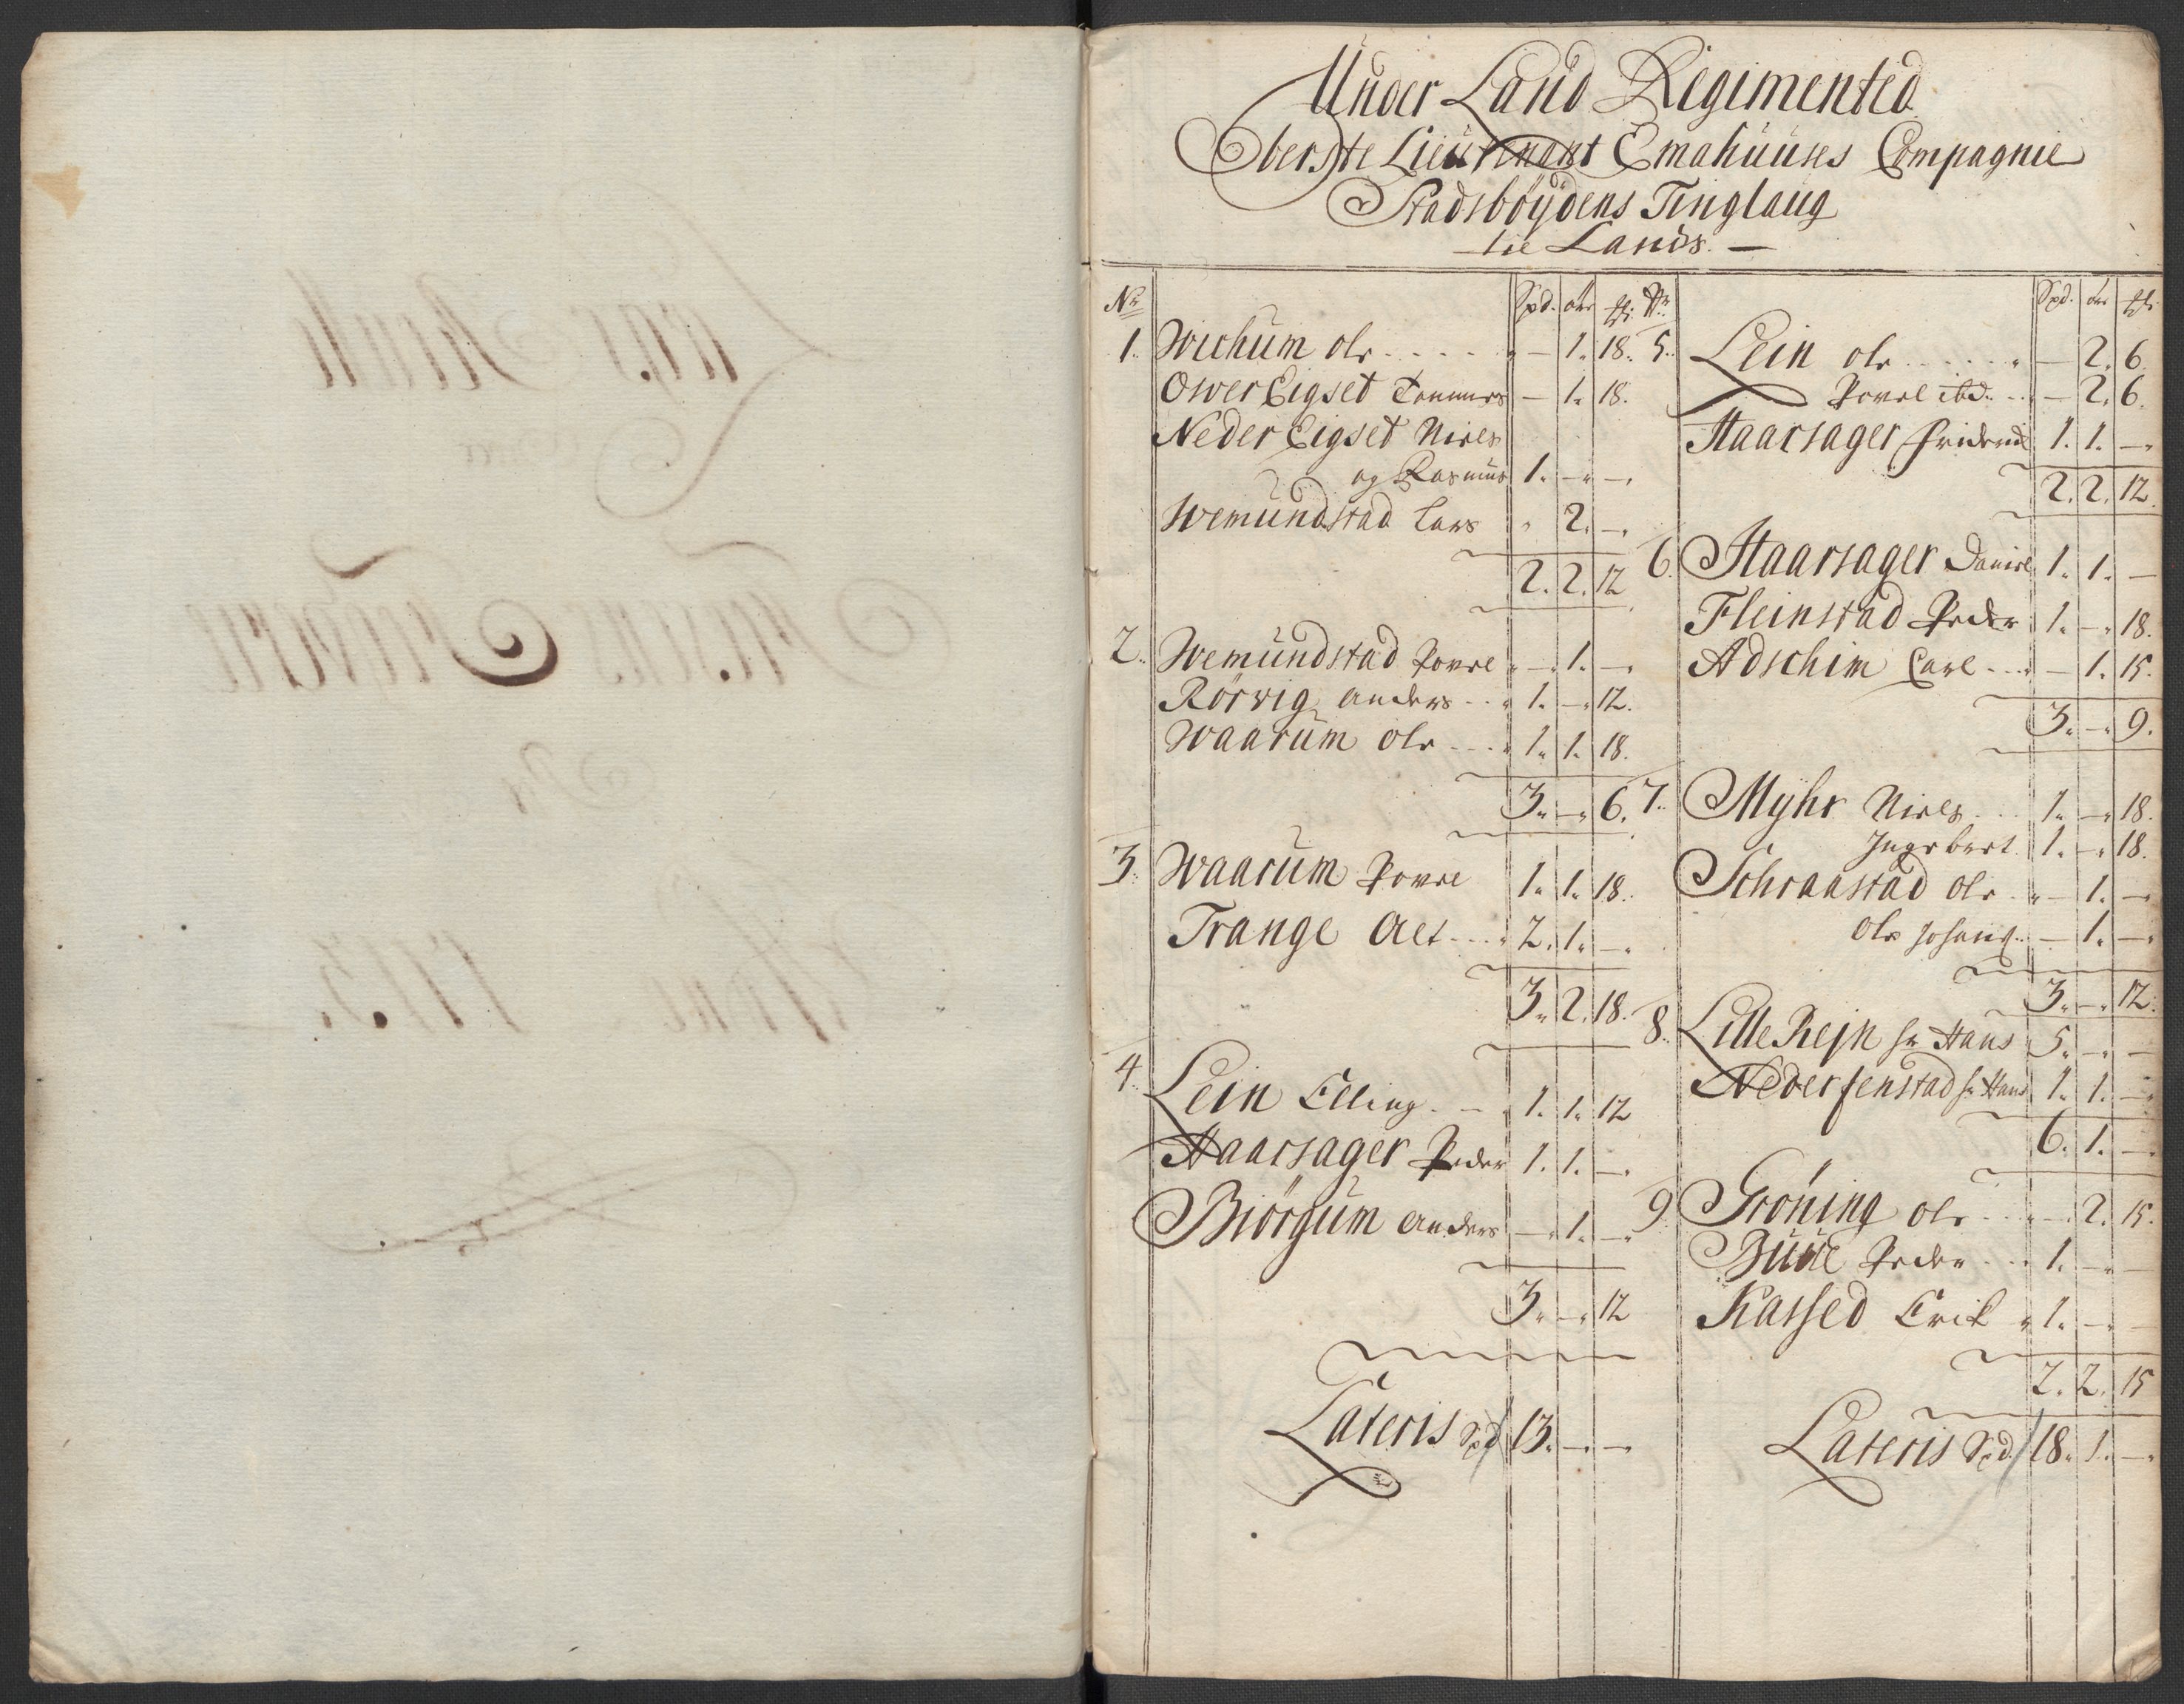 Under Land Regimented
Oberste Lieutenant Emahuuses Compagnie
Stadsböÿdens Tinglaug
tie Lands. —
Nr Spd. ort ß:
1. Wichum ole - - - - - — 1. 18.
Ower Eigset Tommes — 1. 18.
Neder Eigset Niels
og Rasmus 1. — —
Wemundstad Lars 2. —
2. 2. 12
2. Wemundstad Povel — 1. —
Rörvig anders - - 1. — 12.
Waarum ole - - - 1. 1. 18.
3. — 6.
3. Waarum Povel 1. 1. 18.
Trange Alt - - - 2. 1. —
3. 2. 18.
4. Lein Elling - — 1. 1. 12
Haarsager Peder 1. 1. —
Biörgum anders — 1. —
3. — 12
Lateris Spd 13. — —
Nr Spd. ort ß:
5. Lein ole - - - - - — 2. 6
Povel ibd. - - — 2. 6.
Haarsager Friderich 1. 1. —
2. 2. 12.
6. Haarsager Daniel 1. 1. —
Fleinstad Peder 1. — 18.
Adschim Carl - - - — 1. 15.
3. — 9.
7. Mÿhr Niels - - 1. — 18.
Ingebert 1. — 18.
Schraastad ole - — 1. —
ole Johans. - — 1. —
3. — 12.
8. Lille Rejn hr Hans 5. — —
Nederfenstad hr Hans 1. 1. —
6. 1. —
9. Gröning ole - - - — 2. 15.
Büue Peder - - - 1. — —
Kassed Erik 1. — —
2. 2. 15
Lateris Spd 18. 1. —